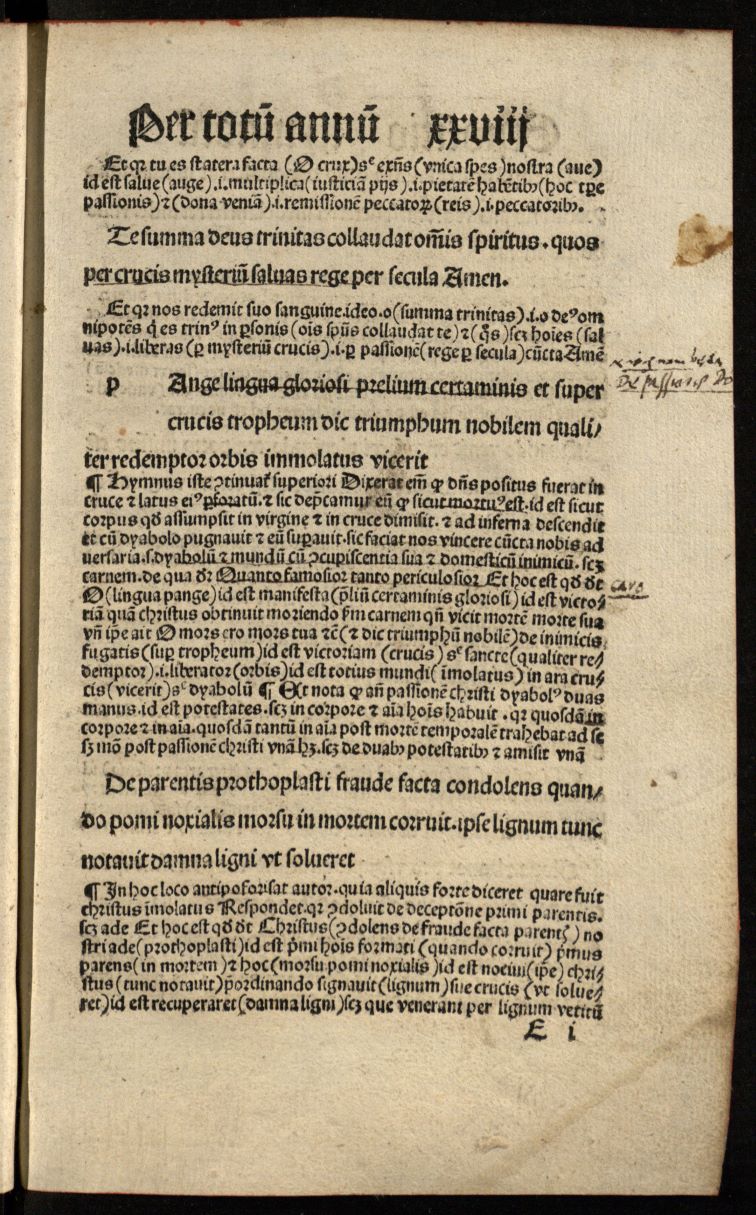 Per totū annū xxviij
Et qꝛ tu es statera facta (O crux) sᶜ exn̄s (vnica spes) nostra (aue)
id est salue (auge) .i. multiplica (iusticiā pijs) .i. pietatē habētibꝰ (hoc tꝑe
passionis) ⁊ (dona veniā) .i. remissionē peccatoꝝ (reis) .i. peccatoribꝰ.
Te summa deus trinitas collaudat om̄is spiritus. quos
per crucis mysteriū saluas rege per secula Amen.
Et qꝛ nos redemit suo sanguine. ideo. o (summa trinitas) .i. o deꝰ om
nipotēs q̄ es trinꝰ in ꝑsonis (oīs spūs collaudat te) ⁊ (q̄s) scꝫ hoīes (sal
uas) .i. liberas (ꝑ mysteriū crucis) .i. ꝑ passionē (rege ꝑ secula) cūcta Amē
De passionis Do
p Ange lingua gloriosi prelium certaminis et super
crucis tropheum dic triumphum nobilem quali/
ter redemptor orbis immolatus vicerit
¶ Hymnus iste ꝯtinuat᷑ superiori Dixerat em̄ ꝙ dn̄s positus fuerat in
cruce ⁊ latus eiꝰ ꝑforatū. ⁊ sic dep̄camur eū ꝙ sicut mortuꝰ est. id est sicut
corpus qd̄ assumpsit in virgine ⁊ in cruce dimisit. ⁊ ad inferna descendit
et cū dyabolo pugnauit ⁊ eū suꝑauit. sic faciat nos vincere cūcta nobis ad
uersaria. s. dyabolū ⁊ mundū cū ꝯcupiscentia sua ⁊ domesticū inimicū. scꝫ
carnem. de qua dr̄ Quanto famosior tanto periculosior Et hoc est qd̄ dt̄
caro
O (lingua pange) id est manifesta (p̄liū certaminis gloriosi) id est victo/
riā quā christus obtinuit moriendo ẜm carnem qn̄ vicit mortē morte sua
vn̄ ip̄e ait O mors ero mors tua ⁊c̄ (⁊ dic triumphū nobilē) de inimicis
fugatis (suꝑ tropheum) id est victoriam (crucis) sᶜ sancte (qualiter re/
demptor) .i. liberator (orbis) id est totius mundi (īmolatus) in ara cru/
cis (vicerit) sᶜ dyabolū ¶ Et nota ꝙ an̄ passionē christi dyabolꝰ duas
manus. id est potestates. scꝫ in corpore ⁊ aīa hoīs habuit. qꝛ quosdā in
corpore ⁊ in aīa. quosdā tantū in aīa post mortē temporalē trahebat ad se
sꝫ mō post passionē christi vnā hꝫ. scꝫ de duabꝰ potestatibꝰ ⁊ amisit vnā
De parentis prothoplasti fraude facta condolens quan/
do pomi noxialis morsu in mortem corruit. ipse lignum tunc
notauit damna ligni vt solueret
¶ In hoc loco antipoforisat autor. quia aliquis forte diceret quare fuit
christus īmolatus Respondet. qꝛ ꝯdoluit de deceptōne primi parentis.
scꝫ ade Et hoc est qd̄ dt̄ Christus (ꝯdolens de fraude facta parentꝭ) no
stri ade (prothoplasti) id est p̄mi hoīs formati (quando corruit) p̄mus
parens (in mortem) ⁊ hoc (morsu pomi noxialis) id est nociui (ip̄e) chri/
stus (tunc notauit) p̄ordinando signauit (lignum) siue crucis (vt solue/
ret) id est recuperaret (damna ligni) scꝫ que venerant per lignum vetitū
E i